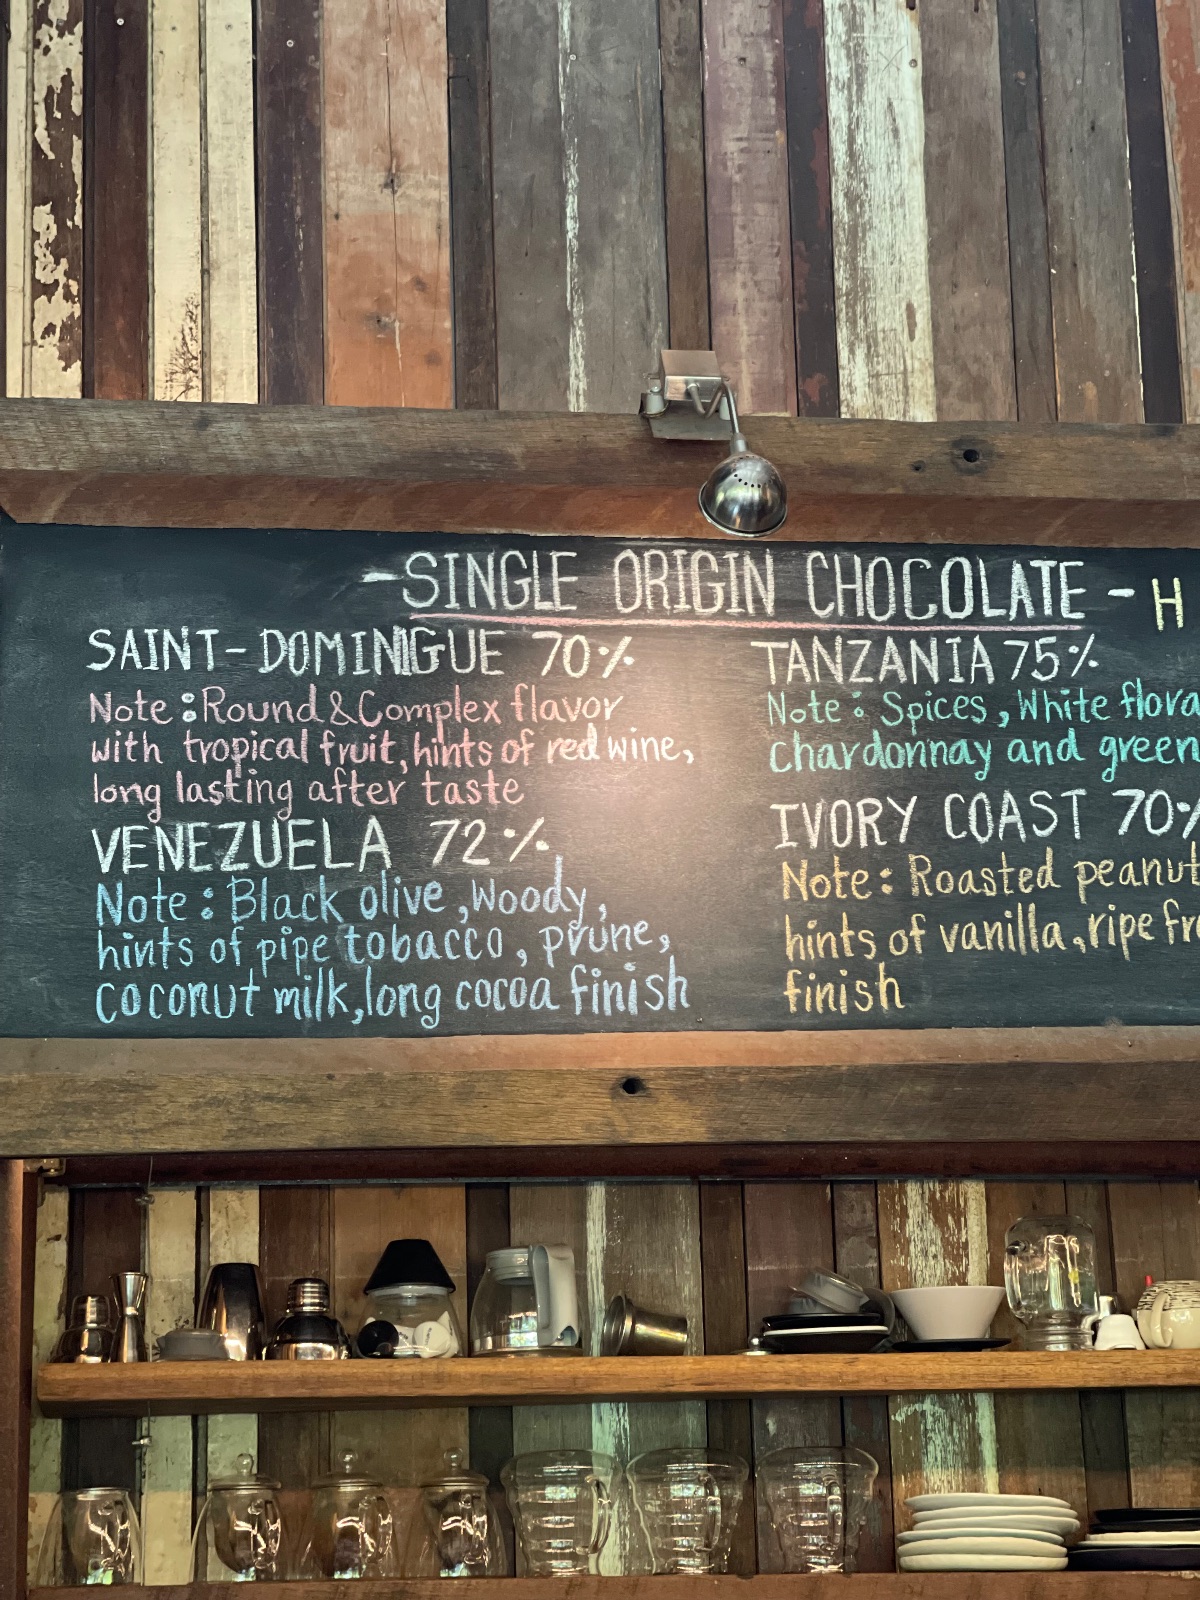 -SINGLE ORIGIN CHOCOLATE-
H
SAINT-DOMINIGUE 70%
Note: Round & Complex flavor
with tropical fruit, hints of red wine,
long lasting after taste
VENEZUELA 72%
Note: Black olive, Woody,
hints of pipe tobacco, prune,
coconut milk, long cocoa finish
TANZANIA 75%
Note: Spices, White flora
chardonnay and green
IVORY COAST 70%
Note: Roasted peanut
hints of vanilla, ripe
finish